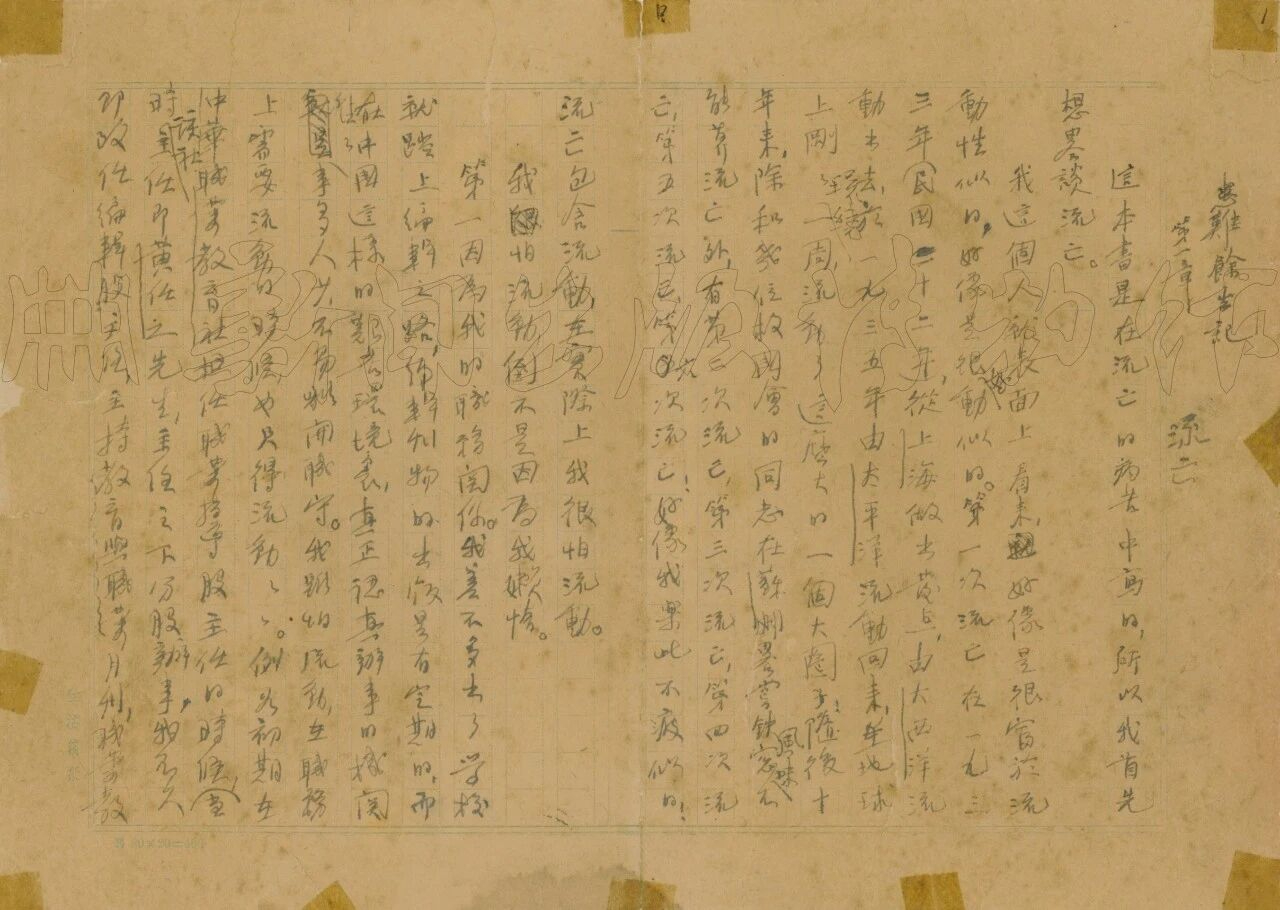 患難餘生記
第一章
流亡
這本書是在流亡的病苦中寫的,所以我首先
想畧談流亡。
我這個人就表面上看來,好像是很富於流
動性似的,好像是很好動似的。第一次流亡在一九三
三年民國二十二年,從上海做出發點,由大西洋流
動出去,於一九三五年由太平洋流動回來,在地球
上剛剛繞了一周,流動了這麼大的一個大圈子!隨後十
年來,除和幾位救國會的同志在蘇州畧嘗鐵窗風味不
能算流亡外,有第二次流亡,第三次流亡,第四次流
亡,第五次流亡,第六次流亡!好像我樂此不疲似的!
流亡包含流動,在實際上我很怕流動。
我怕流動,倒不是因為我懶惰。
第一因為我的職務關係。我差不多出了學校
就踏上編輯之路,編輯刊物的出版是有定期的,而
在中國這樣的艱苦環境裏,真正認真辦事的機關
往往事多人少,不易離開職守。我雖怕流動,在職務
上需要流動的時候也只得流動流動。例如初期在
中華職業教育社担任職業指導股主任的時候,(當
時該社主任即黃任之先生,主任之下分股辦事,)我不久
即改任編輯股主任,主持教育與職業月刊,職業教
20×20=400